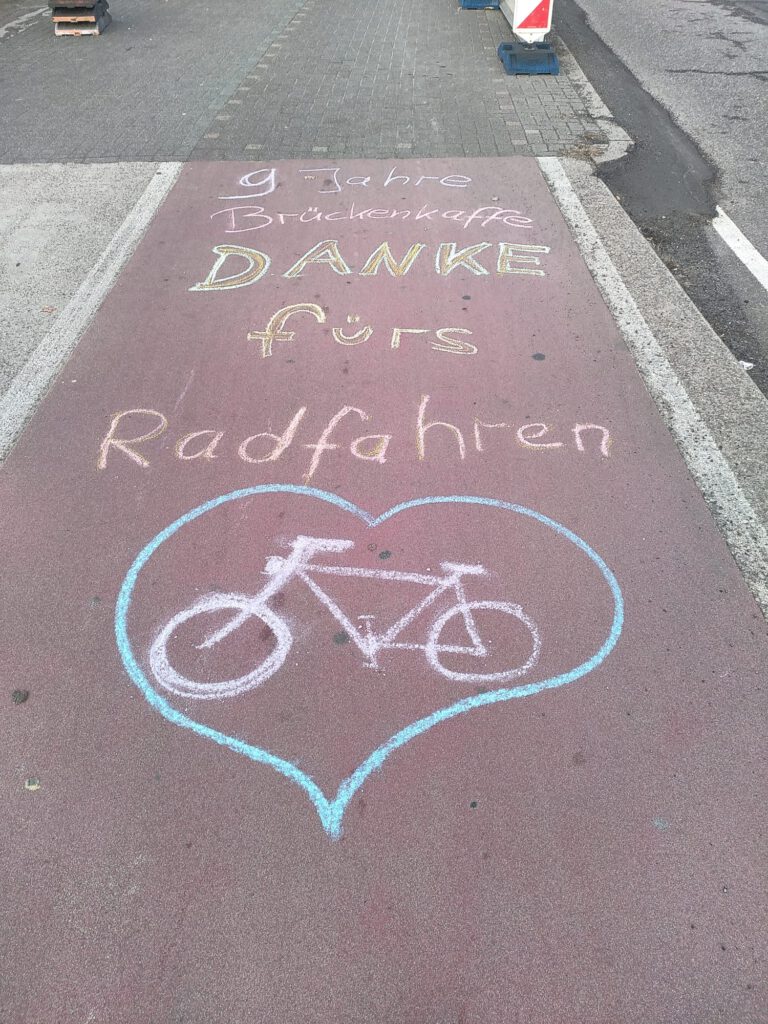 9 Jahre
Brückenkaffe
DANKE
fürs
Radfahren